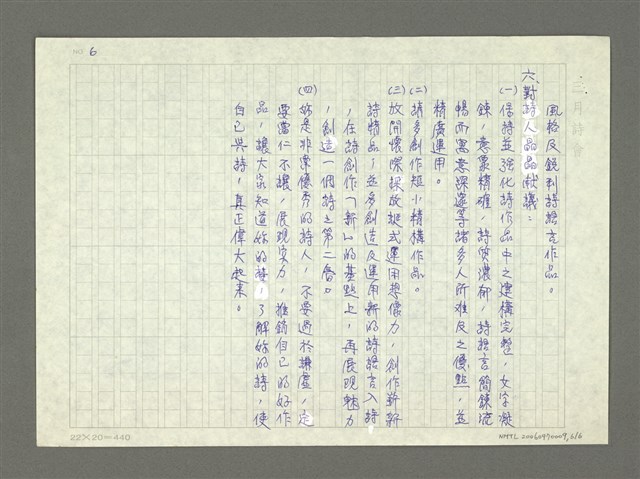 NO. 6
三月詩會
風格及銳利詩語言作品。
六、對詩人晶晶献議：
(一)保持並強化詩作品中之建構完整，文字凝
鍊，意象精確，詩質濃郁，詩語言簡鍊流
暢而寓意深邃等諸多人所難及之優點，並
精廣運用。
(二)請多創作短小精構作品。
(三)放開懷深探放挺式運用想像力，創作新新
詩精品，並多創造及運用新的詩語言入詩
，在詩創作「新」的基點上，再展現魅力
，創造一個詩之第二層力
(四)妳是非常優秀的詩人，不要過於謙虛，定
要當仁不讓，展現实力，推銷自已的好作
品，讓大家知道妳的詩，了解妳的詩，使
自已與詩，真正偉大起来。
22×20=440
NMTL20060970009,6/6